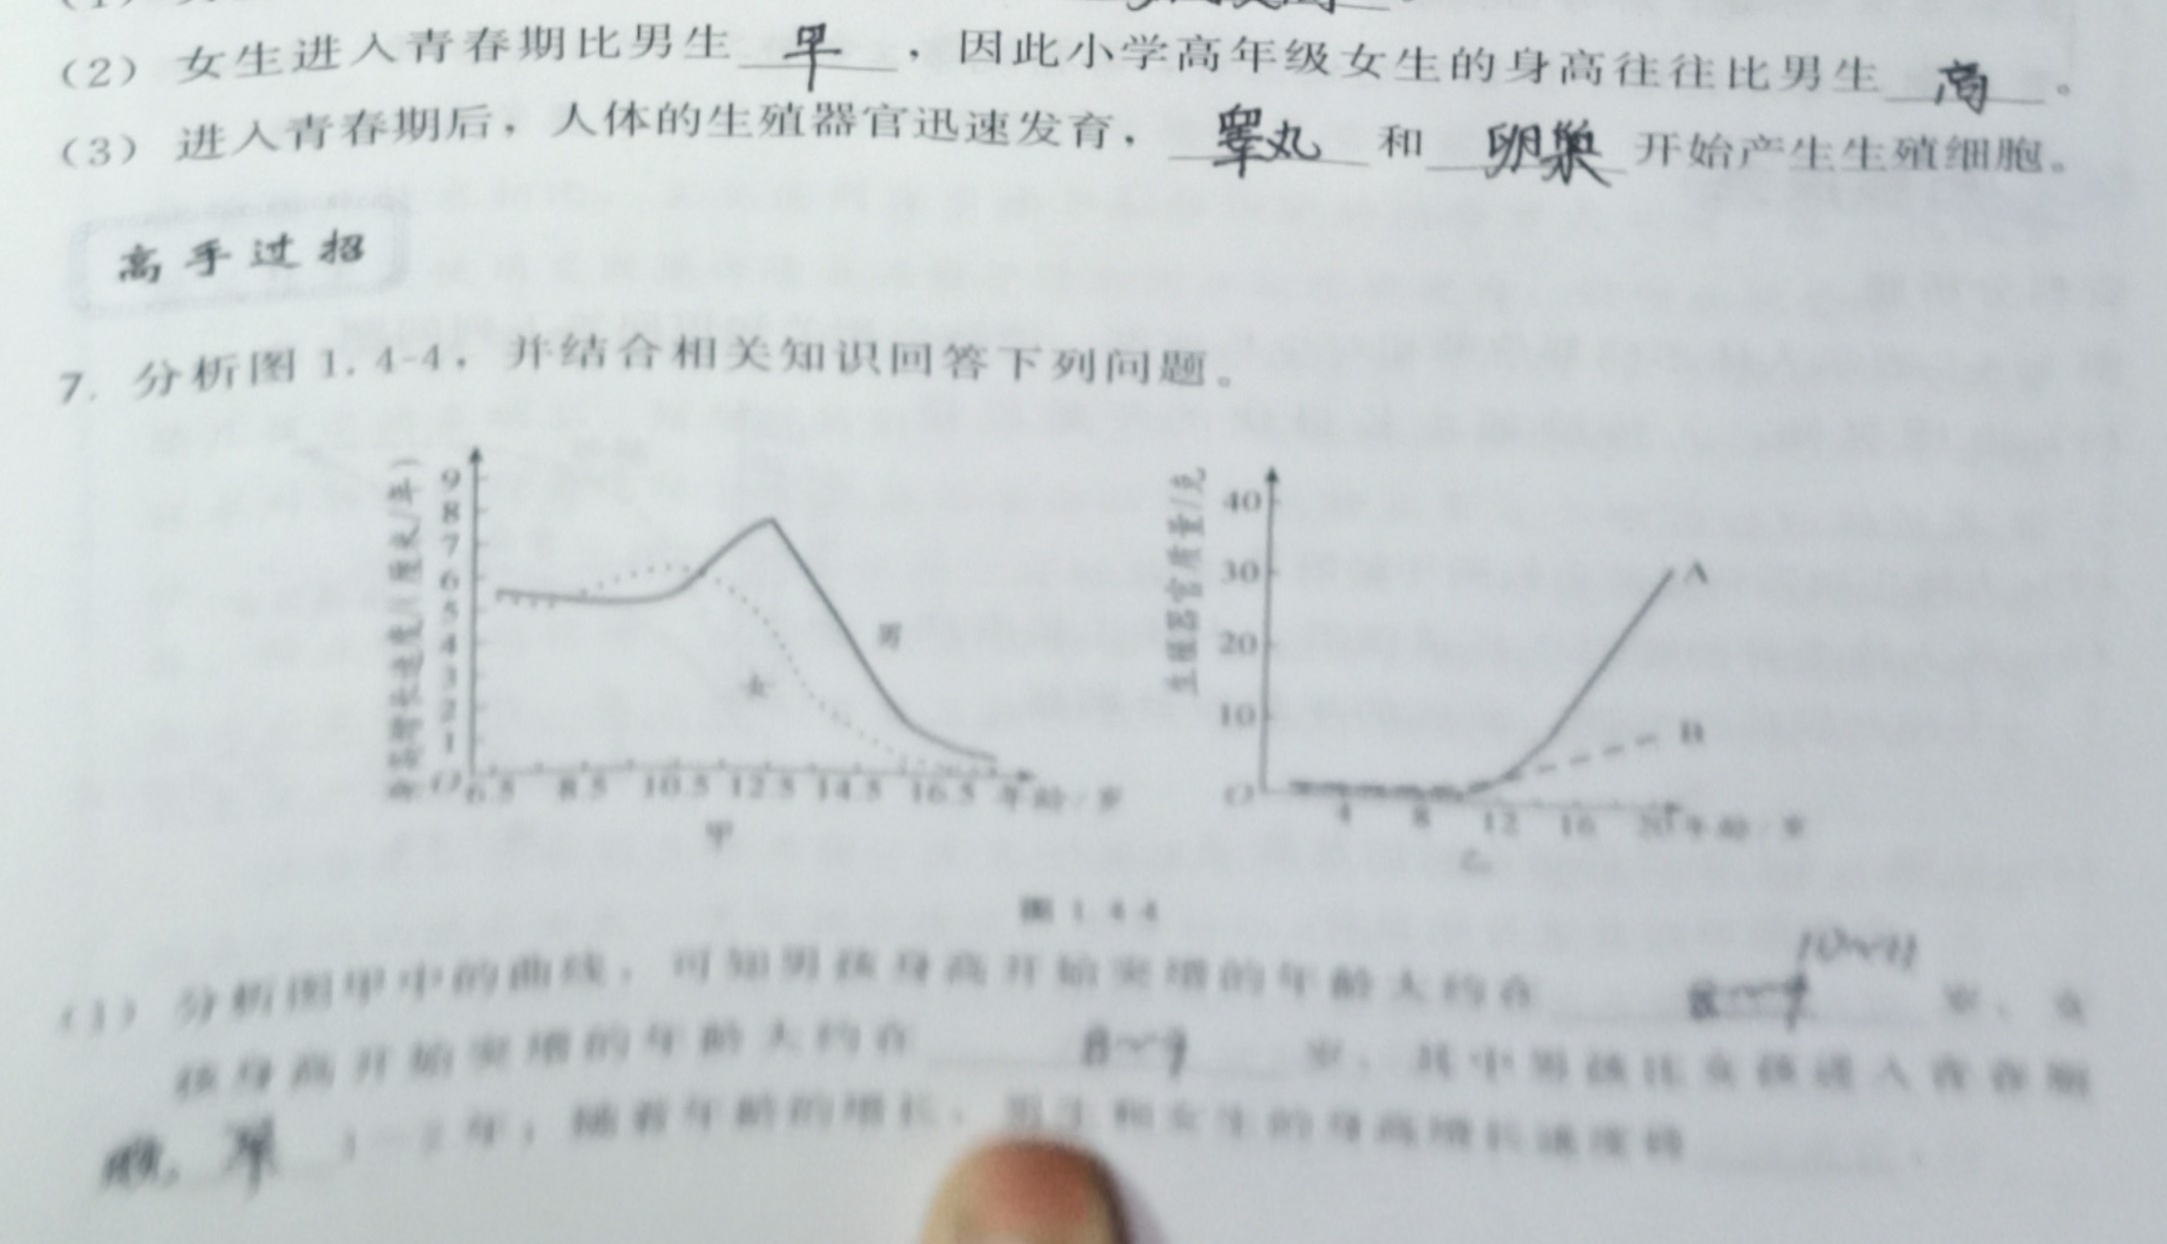 (2) 女生进入青春期比男生 早 ，因此小学高年级女生的身高往往比男生 高 。
(3) 进入青春期后，人体的生殖器官迅速发育， 睾丸 和 卵巢 开始产生生殖细胞。
高手过招
7. 分析图 1.4-4，并结合相关知识回答下列问题。
身高增长速度/(厘米/年)
9
8
7
6
5
4
3
2
1
O
6.5 8.5 10.5 12.5 14.5 16.5 年龄/岁
男
女
甲
生殖器官质量/克
40
30
20
10
O
4 8 12 16 20 年龄/岁
A
B
乙
图 1.4-4
10~11
(1) 分析图甲中的曲线，可知男孩身高开始突增的年龄大约在 岁，女
孩身高开始突增的年龄大约在 8~9 岁，其中男孩比女孩进入青春期
1-2 年；随着年龄的增长，男生和女生的身高增长速度将